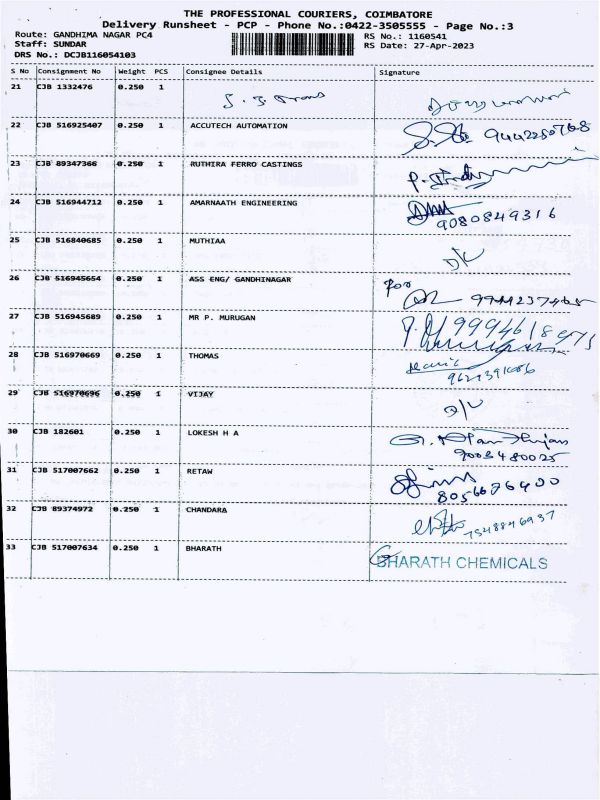 THE PROFESSIONAL COURIERS, COIMBATORE
Delivery Runsheet - PCP - Phone No.:0422-3505555 - Page No.:3
Route: GANDHIMA NAGAR PC4 RS No.: 1160541
Staff: SUNDAR RS Date: 27-Apr-2023
DRS No.: DCJB116054103
S No Consignment No Weight PCS Consignee Details Signature
21 CJB 1332476 0.250 1
22 CJB 516925407 0.250 1 ACCUTECH AUTOMATION
23 CJB 89347366 0.250 1 RUTHIRA FERRO CASTINGS
24 CJB 516944712 0.250 1 AMARNAATH ENGINEERING
9080849316
25 CJB 516840685 0.250 1 MUTHIAA
D/L
26 CJB 516945654 0.250 1 ASS ENG/ GANDHINAGAR for
9944237465
27 CJB 516945689 0.250 1 MR P. MURUGAN
28 CJB 516970669 0.250 1 THOMAS
29 CJB 516970696 0.250 1 VIJAY
D/L
30 CJB 182601 0.250 1 LOKESH H A
9008480025
31 CJB 517007662 0.250 1 RETAW
8056676400
32 CJB 89374972 0.250 1 CHANDARA
7548846937
33 CJB 517007634 0.250 1 BHARATH BHARATH CHEMICALS